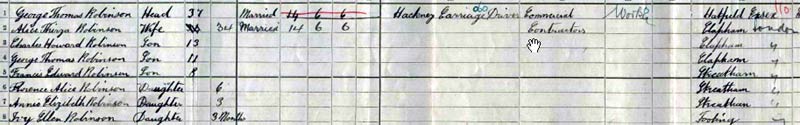 1 George Thomas Robinson Head 37 Married 14 6 6 Hackney Carriage Driver 060 Commercial Worker Hatfield Essex 110
2 Alice Theriza Robinson Wife 34 Married 14 6 6 Contractors Clapham London
3 Charles Howard Robinson Son 13 Clapham "
4 George Thomas Robinson Son 11 Clapham "
5 Francis Edward Robinson Son 8 Streatham "
6 Florence Alice Robinson Daughter 6 Streatham "
7 Annie Elizabeth Robinson Daughter 3 Streatham "
8 Ivy Ellen Robinson Daughter 3 Months Tooting "